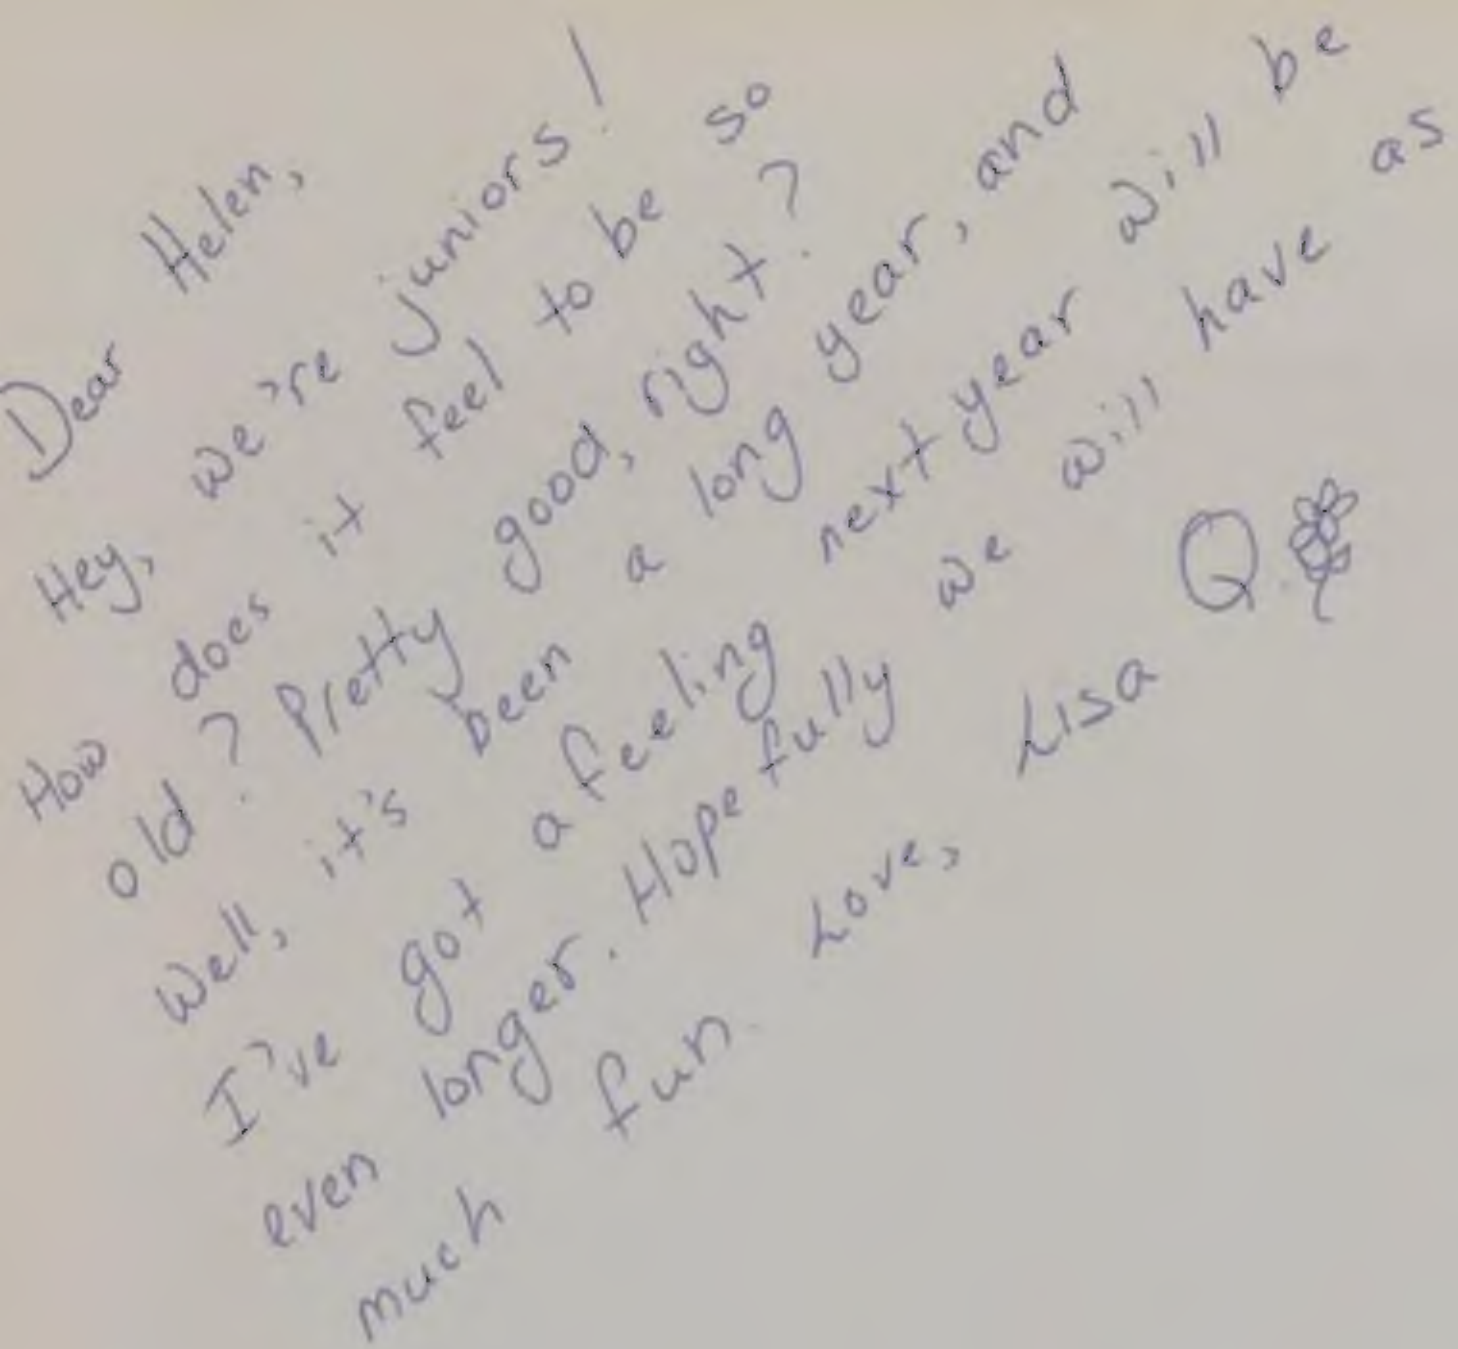 Dear Helen,
Hey, we're juniors!
How does it feel to be so
old? Pretty good, right?
Well, it's been a long year, and
I've got a feeling next year will be
even longer. Hopefully we will have as
much fun.
Love,
Lisa Q.